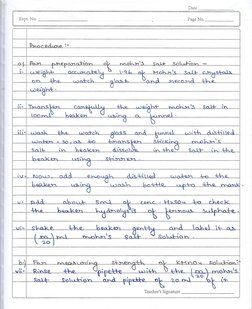 Date
Expt. No. Page No.
Procedure :-
a) For preparation of mohr's salt solution -
i. weight accurately 1.96 of Mohr's salt crystals
on the watch glass and record the
weight.
ii. Transfer carefully the weight mohr's salt in
100ml beaker using a funnel.
iii. wash the watch glass and funnel with distilled
water so as to transfer sticking mohr's
salt in beaker dissolve in the salt in the
beaker using stirrer.
iv. Now, add enough distilled water to the
beaker using wash bottle upto the mark.
v. Add about 5ml of conc. H2SO4 to check
the beaker hydrolysis of ferrous sulphate.
vi. Shake the beaker gently and label it as
(m/20) ml mohr's salt solution.
b) For measuring strength of KMnO4 solution:-
vii. Rinse the pipette with the (m/20) mohr's
salt solution and pipette of 20 ml of it
Teacher's Signature